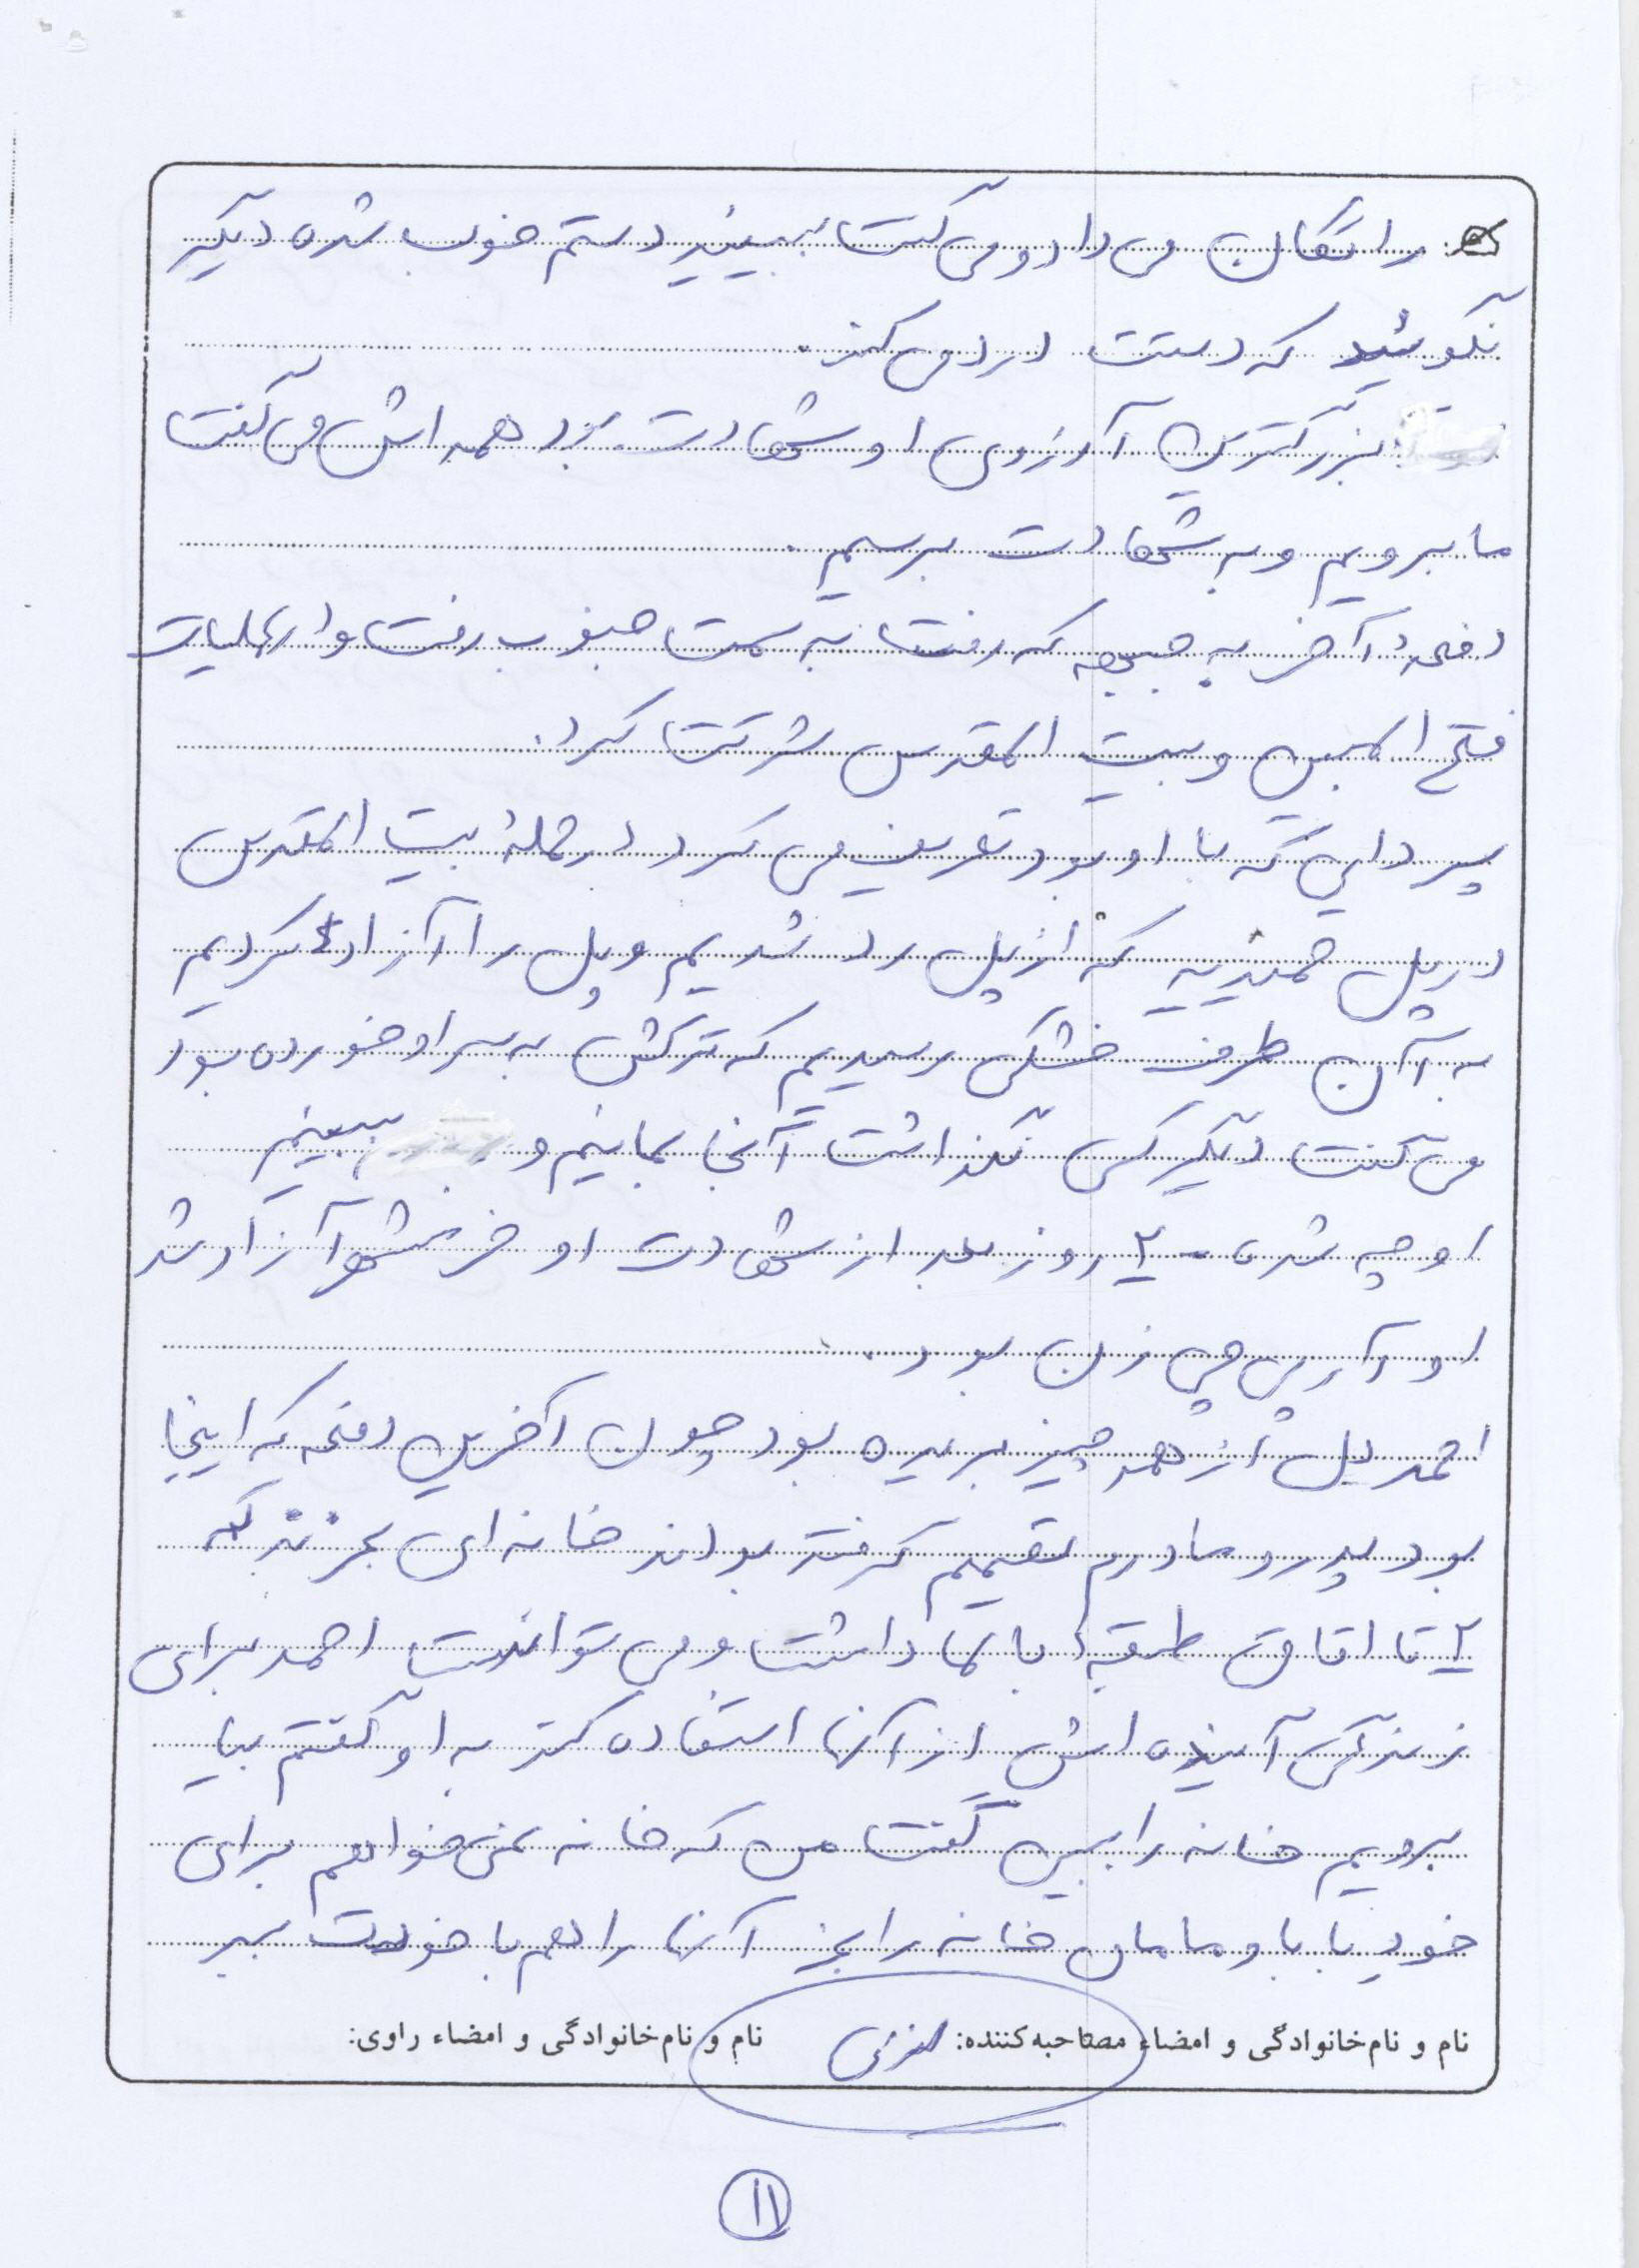 را تکان می داد و می گفت ببینید دستم خوب شده دیگر
نگوئید که دستت درد می کند.
بزرگترین آرزوی او شهادت بود همه اش می گفت
ما برویم و به شهادت برسیم.
دفعهٔ آخر به جبهه که رفت به سمت جنوب رفت و در عملیات
فتح المبین و بیت المقدس شرکت کرد.
پسر دایی که با او بود تعریف می کرد در حملهٔ بیت المقدس
در پل حمیدیه که از پل رد شدیم و پل را آزاد کردیم
به آن طرف خشکی رسیدیم که ترکش به سر او خورده بود
می گفت دیگر کسی نگذاشت آنجا بمانیم و ببینیم
او چه شده ۲۰ روز بعد از شهادت او خرمشهر آزاد شد
او آر پی جی زن بود.
احمد دل از همه چیز بریده بود چون آخرین دفعه که اینجا
بود پدر و مادرم تصمیم گرفته بودند خانه ای بخرند که
۲ تا اتاق طبقهٔ بالا داشت و می توانست احمد برای
زندگی آینده اش از آنها استفاده کند به او گفتم بیا
برویم خانه را ببین گفت من که خانه نمی خواهم برای
خود بابا و مامان خانه را بخر آنها را هم با خودت ببر
نام و نام‌خانوادگی و امضاء مصاحبه‌کننده: نام و نام‌خانوادگی و امضاء راوی:
۱۱